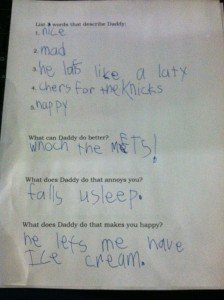 List 5 words that describe Daddy:
1. nice
2. mad
3. he lafs like a laty
4. chers for the knicks
5. happy
What can Daddy do better?
whoch the METS!
What does Daddy do that annoys you?
falls usleep.
What does Daddy do that makes you happy?
he lets me have
Ice cream.